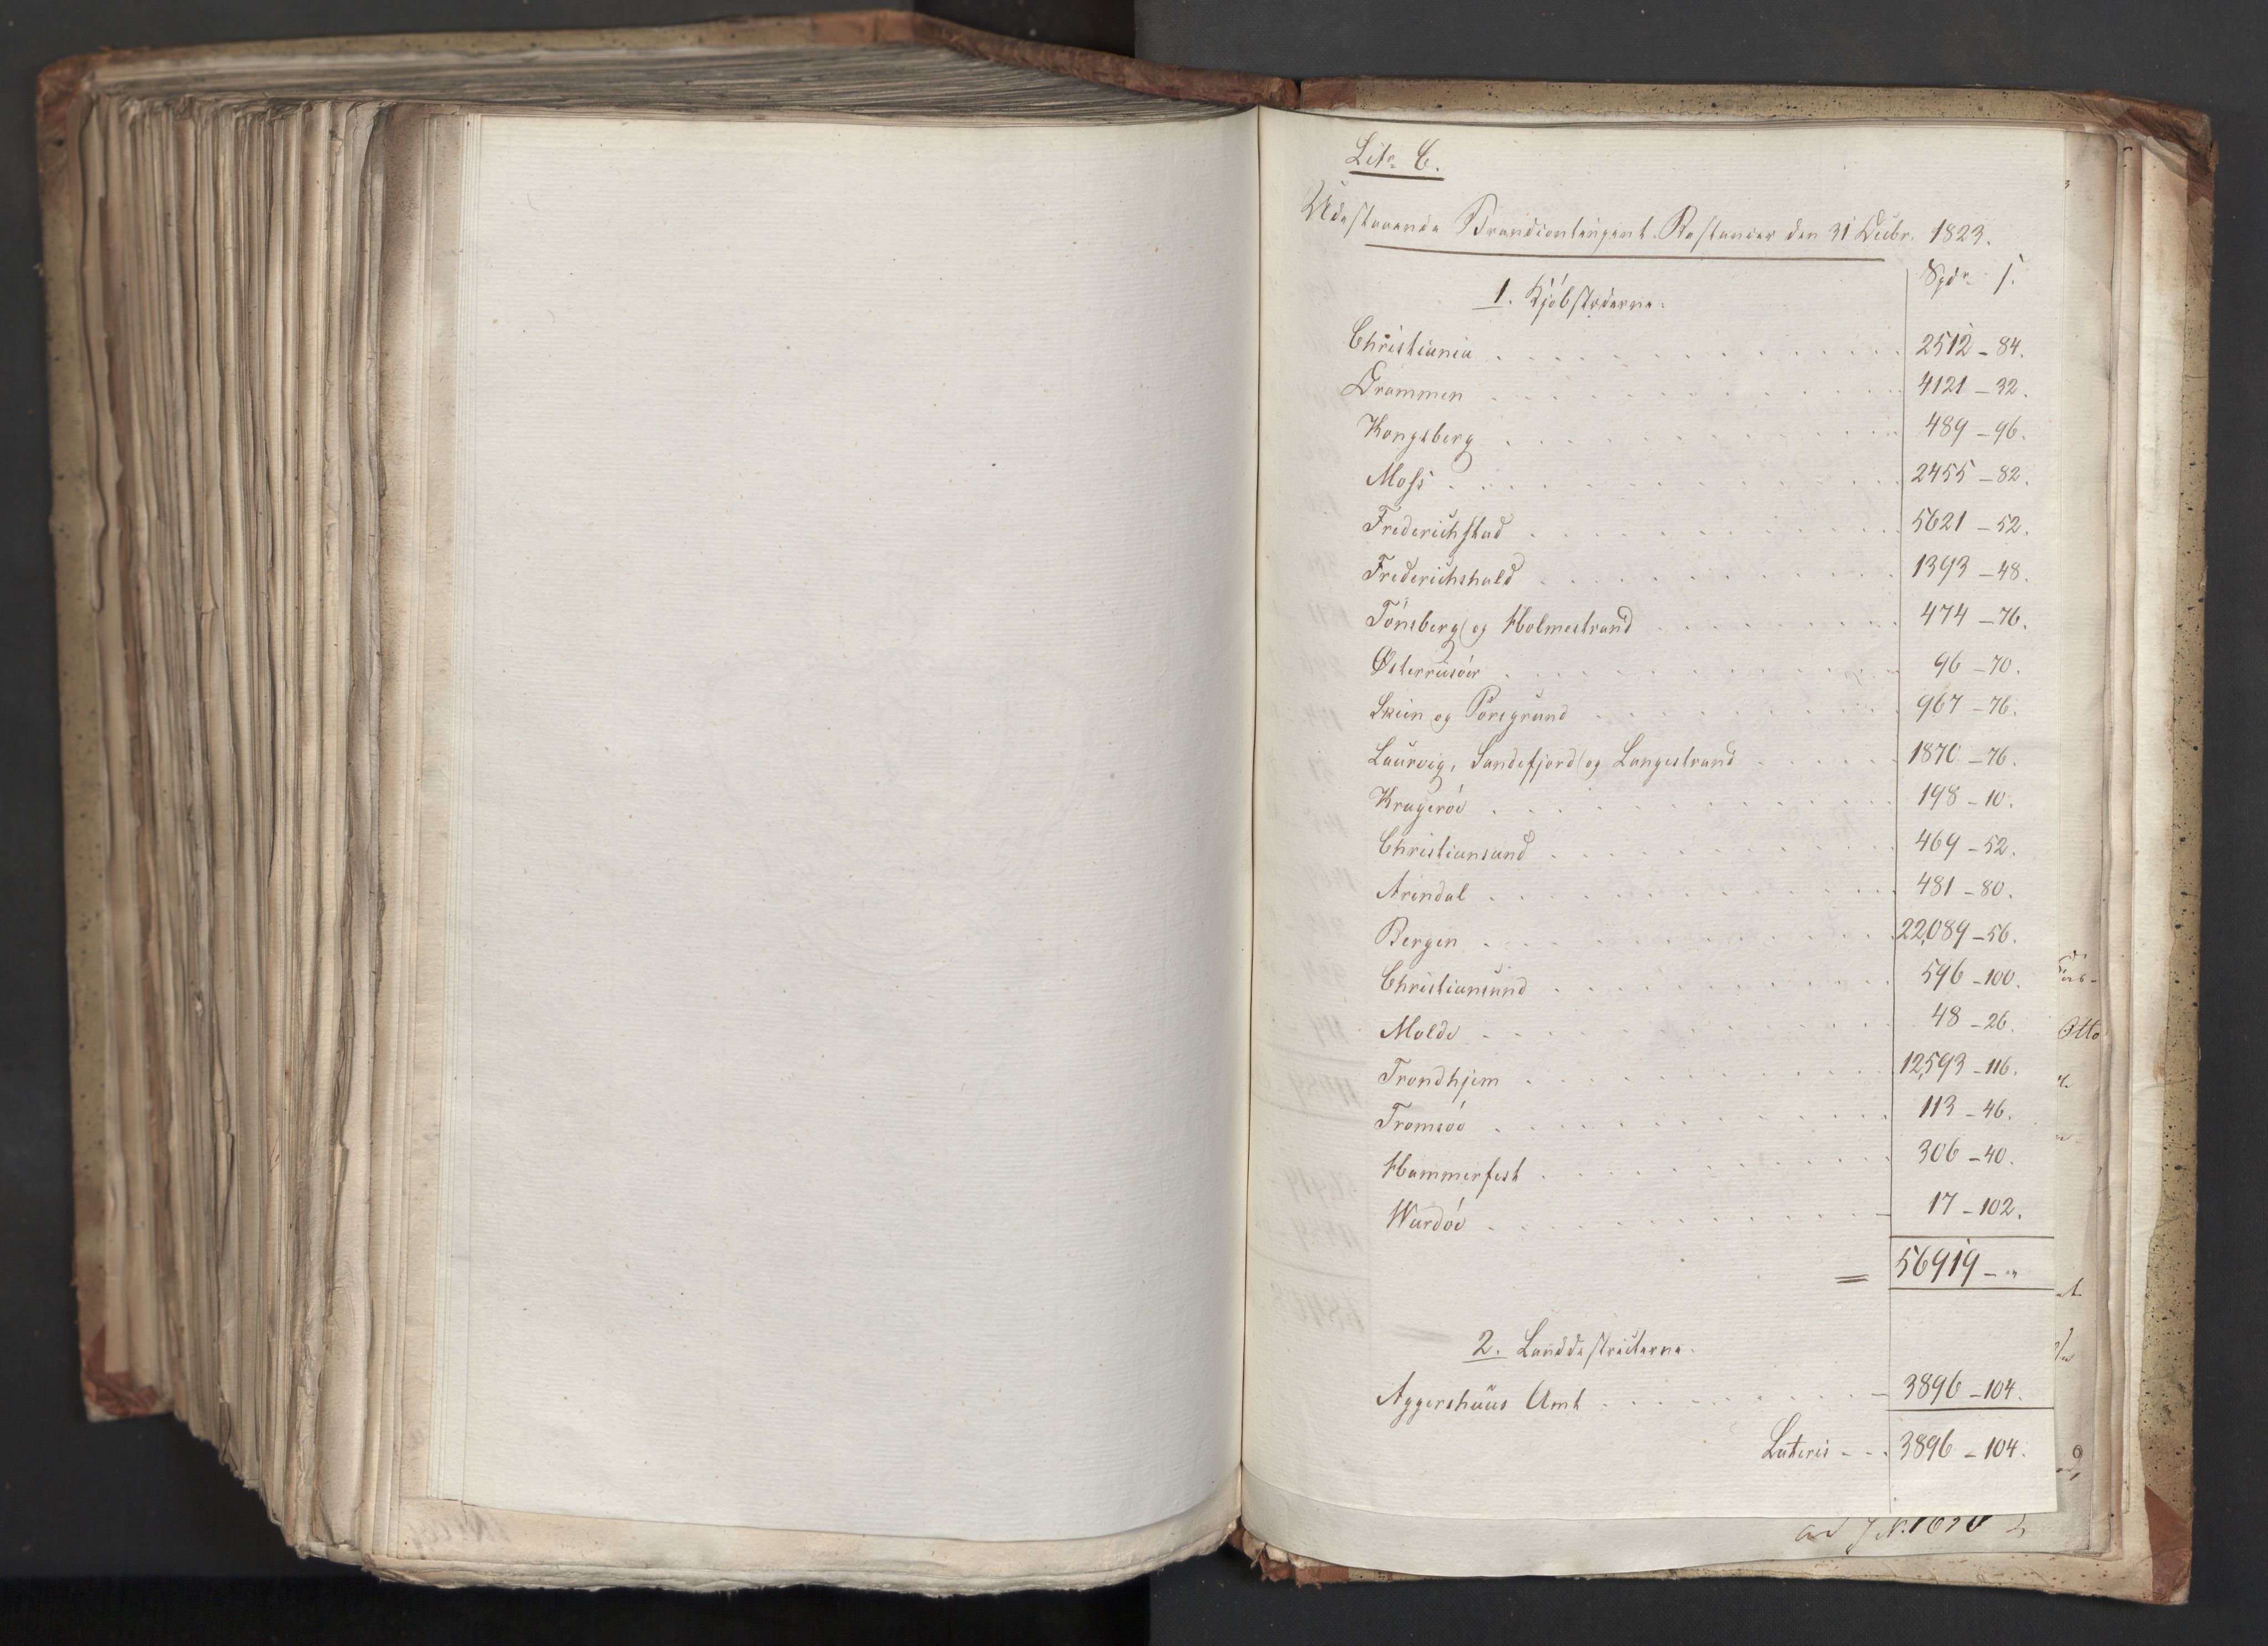 Litr C.
Udestaaende Brandcontingent-Restancer den 31 Decbr. 1823.
Spdr. ſ.
1. Kjøbstæderne.
Christiania . . . 2512 - 84.
Drammen . . . 4121 - 32.
Kongsberg . . . 489 - 96.
Moss . . . 2455 - 82.
Frederichstad . . . 5621 - 52.
Frederichshald . . . 1393 - 48.
Tønsberg og Holmestrand . . . 474 - 76.
Østerriisöer . . . 96 - 70.
Skien og Porsgrund . . . 967 - 76.
Laurvig, Sandefjord og Langestrand . . . 1870 - 76.
Krageröe . . . 198 - 10.
Christiansand . . . 469 - 52.
Arendal . . . 481 - 80.
Bergen . . . 22,089 - 56.
Christiansund . . . 596 - 100.
Molde . . . 48 - 26.
Trondhjem . . . 12,593 - 116.
Tromsöe . . . 113 - 46.
Hammerfest . . . 306 - 40.
Wardöe . . . 17 - 102.
= 56919 - "
2. Landdistricterne.
Aggershuus Amt . . . 3896 - 104.
Lateris - - . 3896 - 104.
Otto